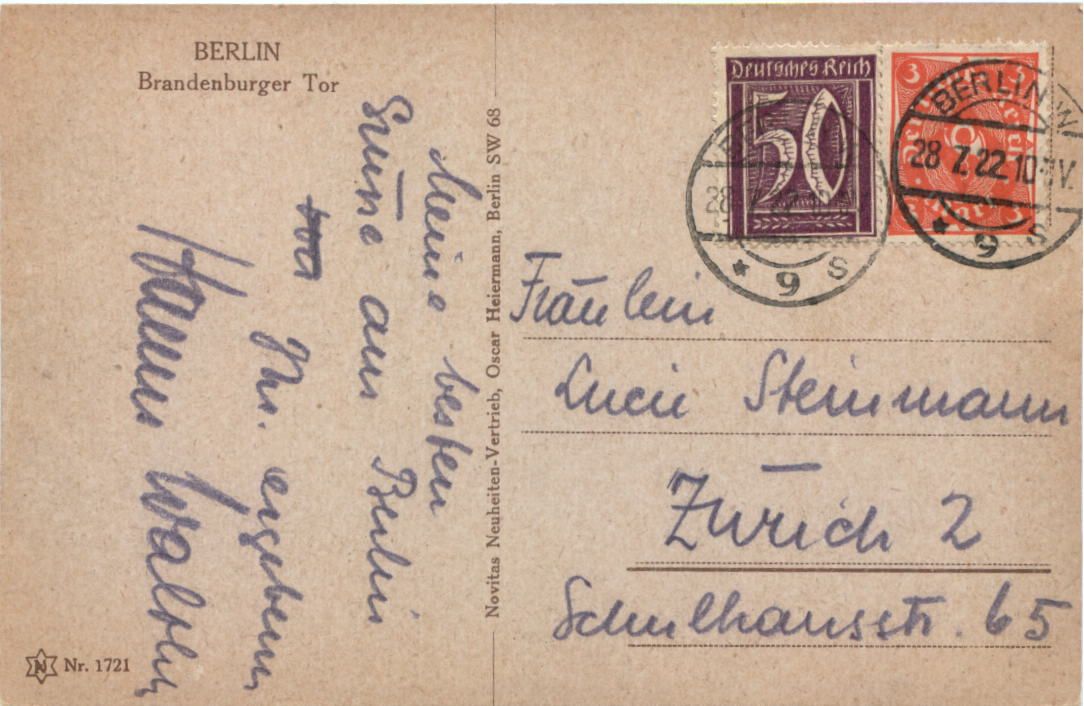 BERLIN
Brandenburger Tor
Meine besten
Grüße aus Berlin
Ihr ergebener
Hans
Nr. 1721
Novitas Neuheiten-Vertrieb, Oscar Heiermann, Berlin SW 68
Deutsches Reich
50
3 3
Deutsches Reich
3 Mark 3
BERLIN W
28.7.22.10-11V.
* 9 s
Fräulein
Lucie Steinmann
Zürich 2
Schulhausstr. 65